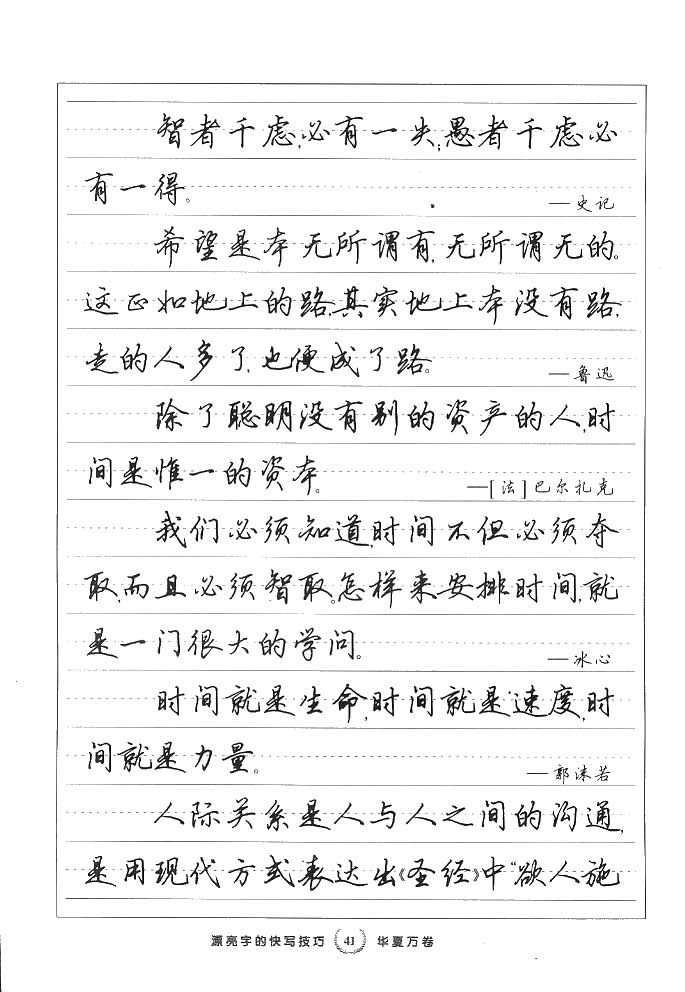 智者千虑,必有一失;愚者千虑必
有一得。
—史记
希望是本无所谓有,无所谓无的。
这正如地上的路,其实地上本没有路,
走的人多了,也便成了路。
—鲁迅
除了聪明没有别的资产的人,时
间是惟一的资本。
—[法]巴尔扎克
我们必须知道,时间不但必须夺
取,而且必须智取。怎样来安排时间,就
是一门很大的学问。
—冰心
时间就是生命,时间就是速度,时
间就是力量。
—郭沫若
人际关系是人与人之间的沟通,
是用现代方式表达出《圣经》中“欲人施
漂亮字的快写技巧 41 华夏万卷